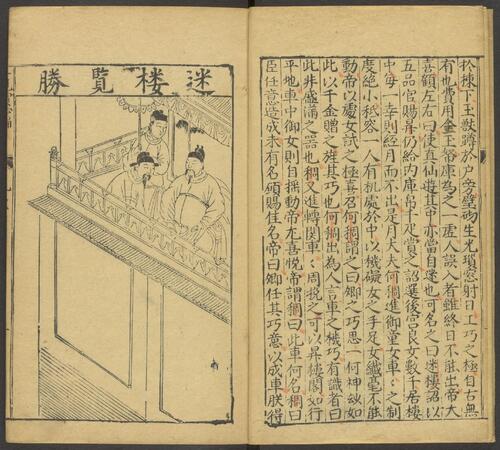 於棟下玉獸蹲於戶旁壁砌生光瑣窓射日工巧之極自古無
有也費用金玉帑庫為之一虛人誤入者雖終日不能出帝大
喜顧左右曰使真仙遊其中亦當自迷也可名之曰迷樓詔以
五品官賜昇仍給內庫帛千疋賞之詔選後宮良女數千居樓
中每一幸則經月而不出是月大夫何稠進御童女車之制
度絕小秪容一人有机處於中以機礙女之手足女纖毫不能
動帝以處女試之極喜召何稠謂之曰卿之巧思一何神妙如
此以千金贈之旌其巧也何稠出為人言車之機巧有識者曰
此非盛滿之器也稠又進轉関車周挽之可以昇楼閣如行
平地車中御女則自搖動帝尤喜悅帝謂稠曰此車何名稠曰
臣任意造成未有名頋賜佳名帝曰卿任其巧意以成車朕得
迷楼覧勝